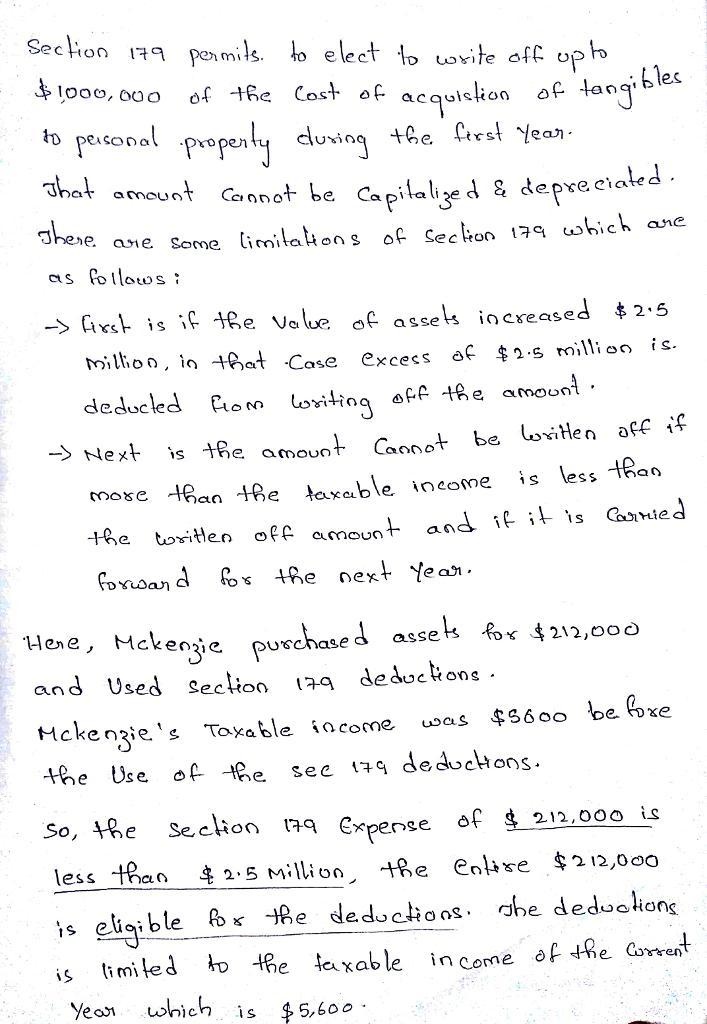 Section 179 permits. to elect to write off upto
$1,000,000 of the Cost of acquistion of tangibles
to personal property during the first Year.
That amount Cannot be Capitalized & depreciated.
There are some limitations of Section 179 which are
as follows :
→ first is if the Value of assets increased $2.5
million, in that Case excess of $2.5 million is.
deducted from writing off the amount.
→ Next is the amount Cannot be written off if
more than the taxable income is less than
the written off amount and if it is Carried
forward for the next Year.
Here, Mckenzie purchased assets for $212,000
and Used section 179 deductions.
Mckenzie's Taxable income was $5600 before
the Use of the sec 179 deductions.
So, the Section 179 Expense of $ 212,000 is
less than $ 2.5 Million, the entire $212,000
is eligible for the deductions. The deductions
is limited to the taxable income of the Current
Year which is $5,600.